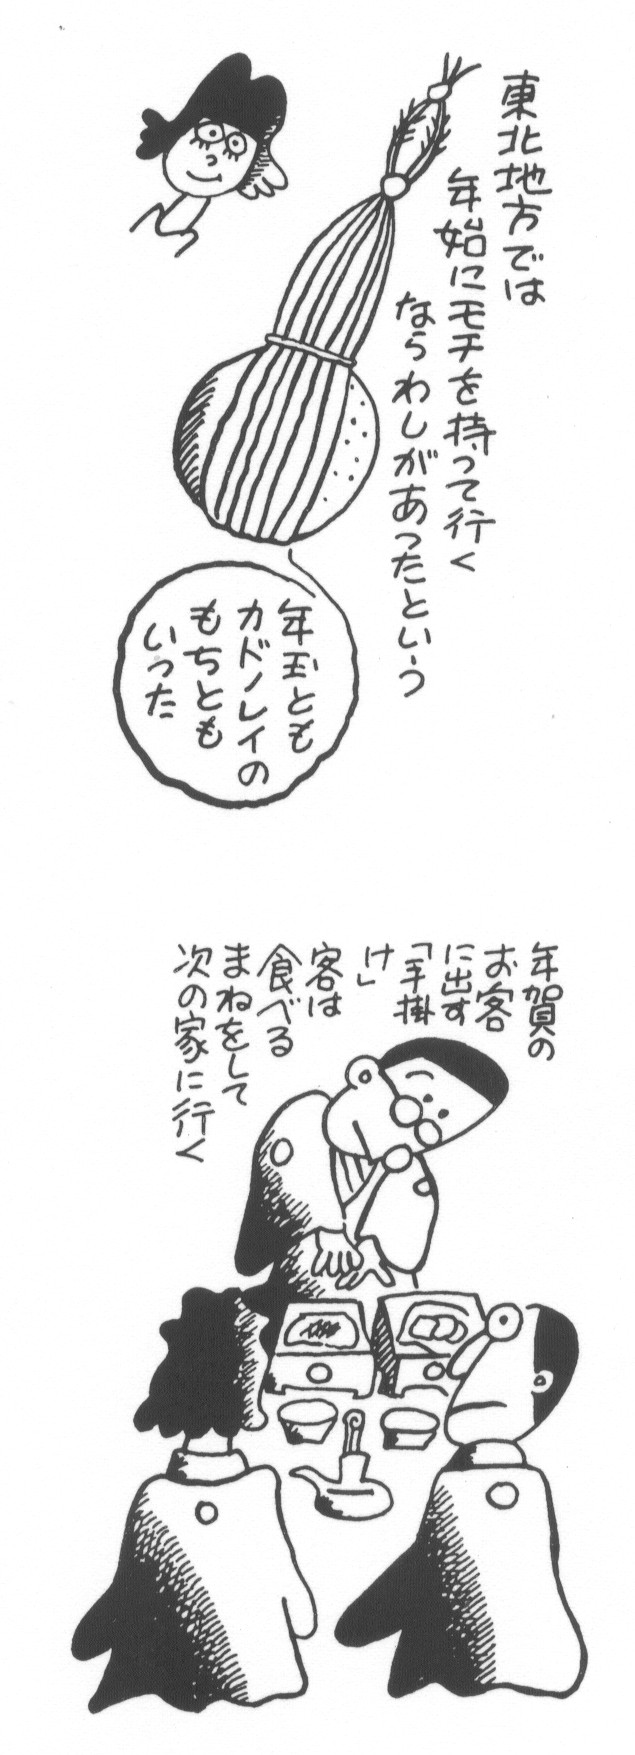 東北地方では
年始にモチを持って行く
ならわしがあったという
年玉とも
カドノレイの
もちとも
いった
年賀の
お客
に出す
「手掛
け」
客は
食べる
まねをして
次の家に行く